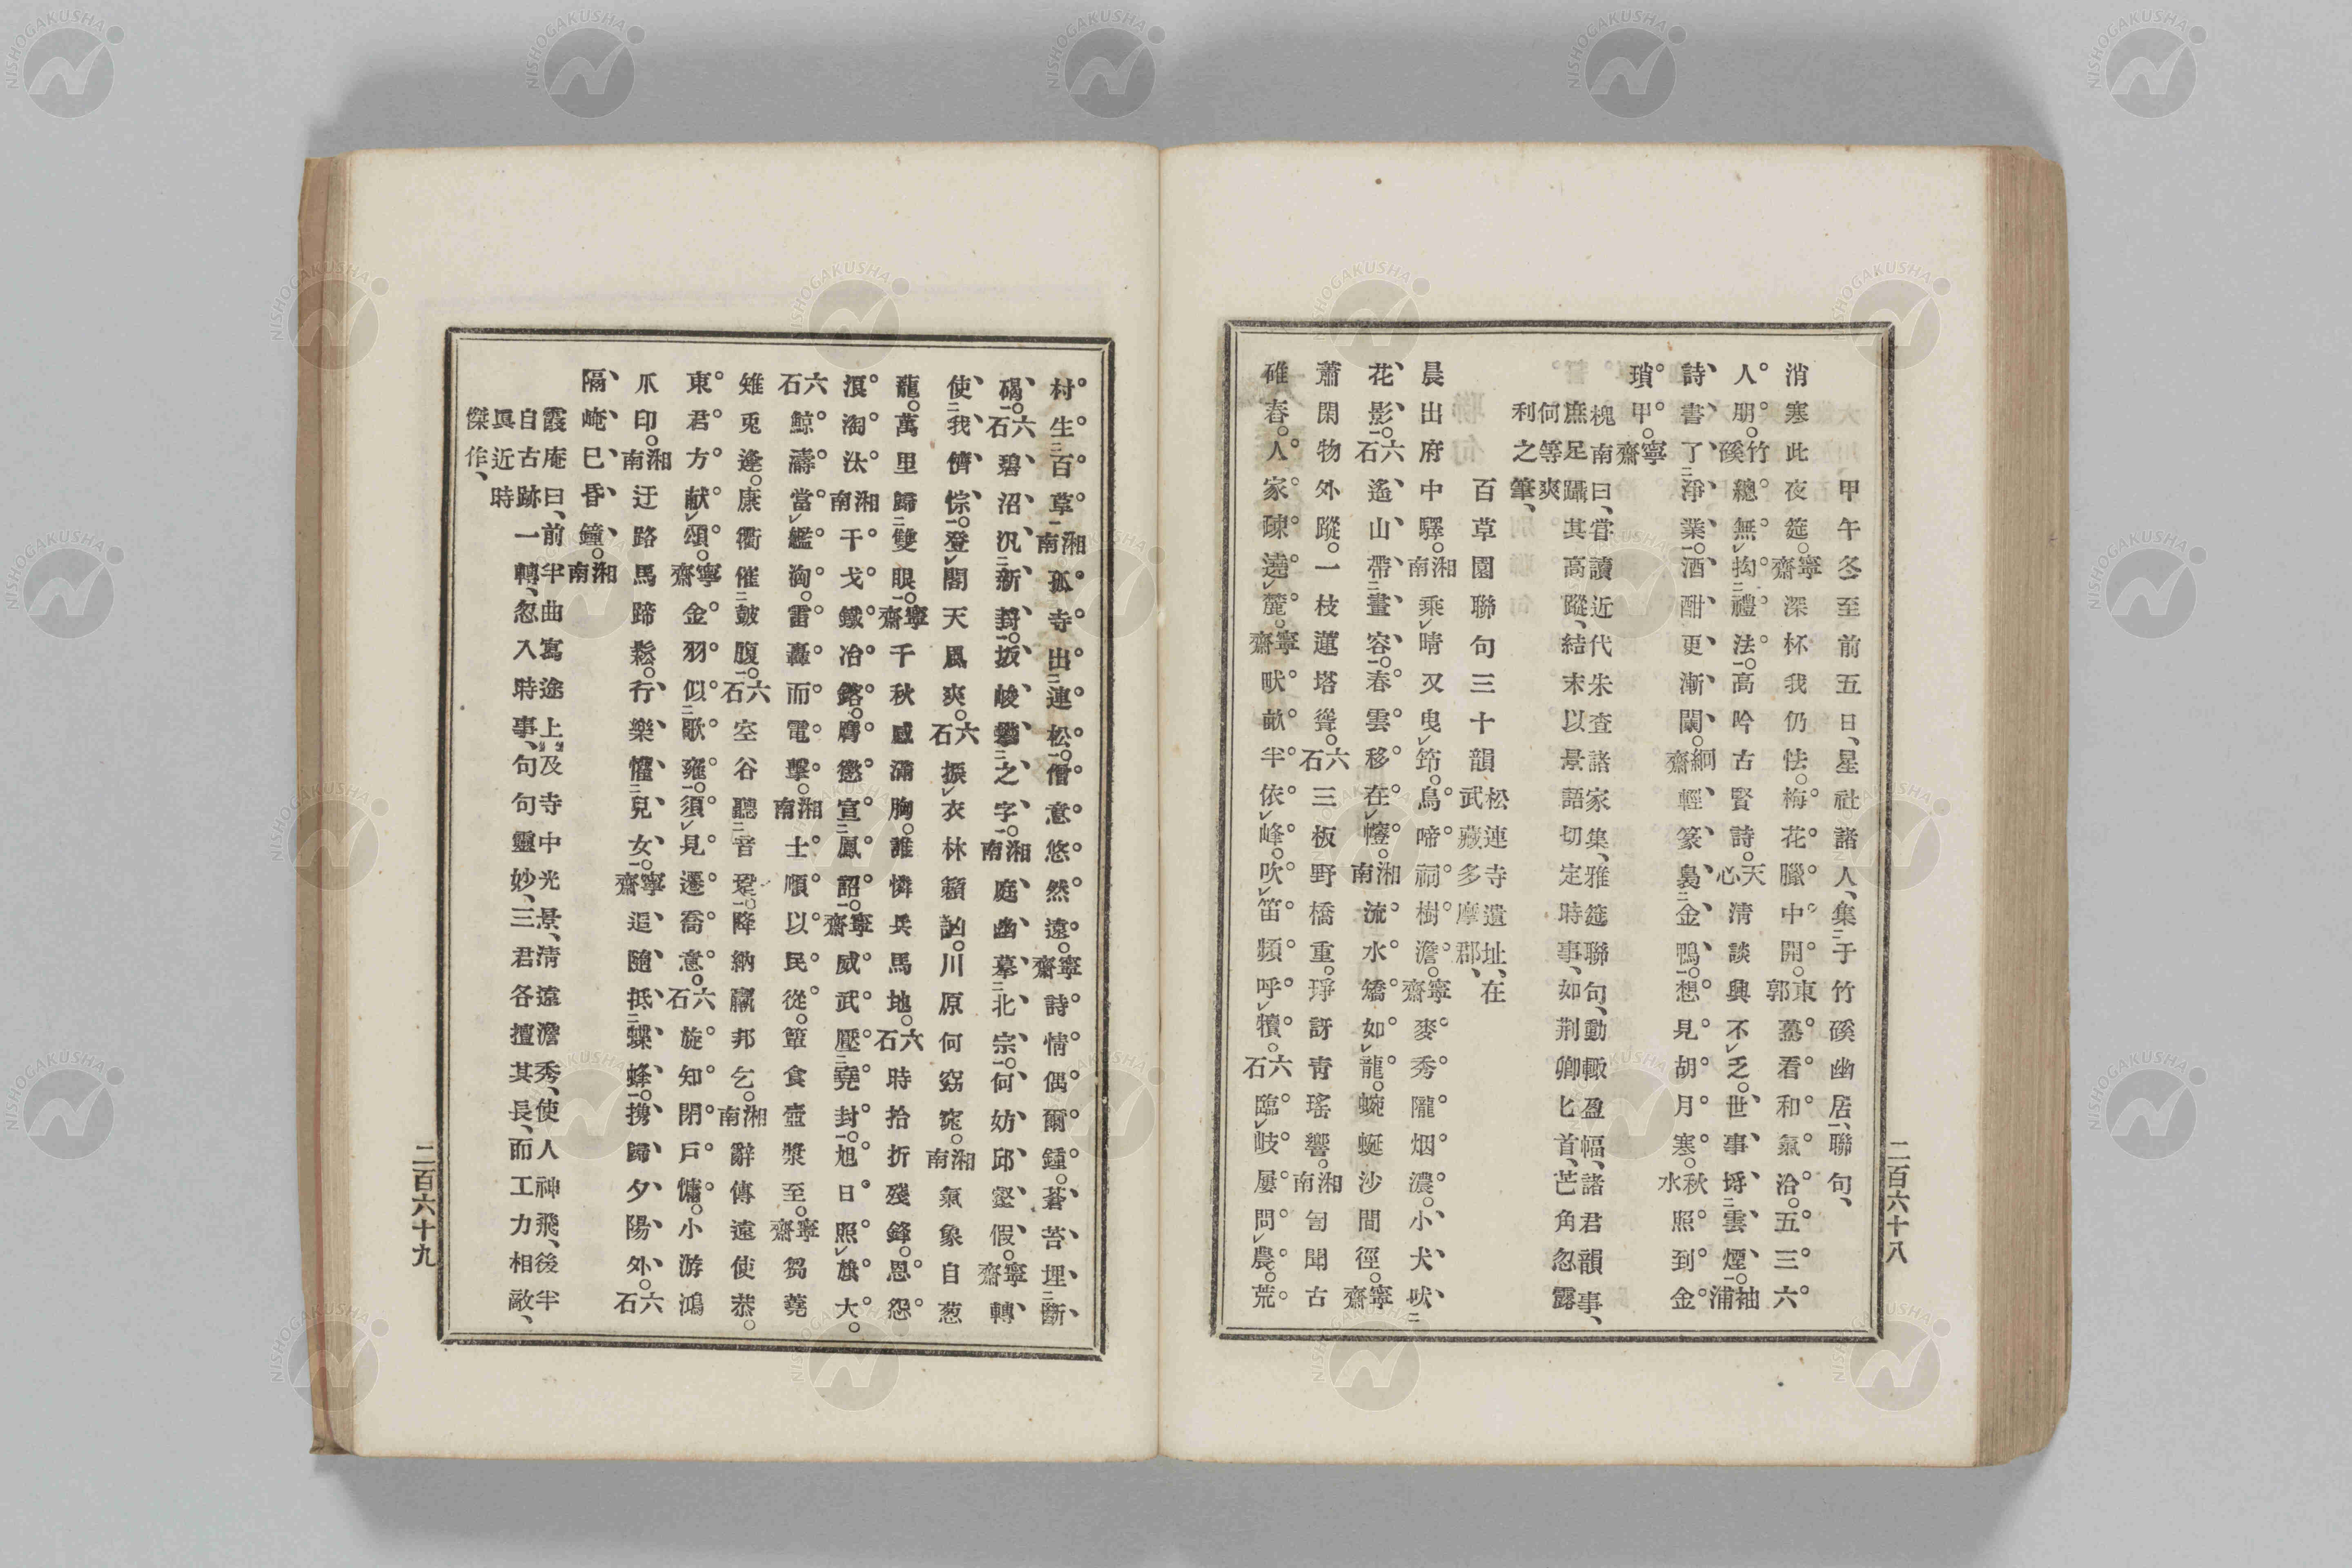 甲午冬至前五日、星社諸人、集于竹磎幽居、聯句、
消寒此夜筵。寧齋深杯我仍怯。梅花臘中開。東郭驀看和氣洽。五三六
人朋。竹磎總無拘禮法。高吟古賢詩。天心清談興不乏。世事埓雲煙。袖浦
詩書了淨業。酒酣更漸闌。絅齋輕篆裊金鴨。想見胡月寒。秋水照到金
瑣甲。寧齋
槐南曰、嘗讀近代朱查諸家集、雅筵聯句、動輙盈幅、諸君韻事、
庶足躡其高蹤、結末以景語切定時事、如荆卿匕首、芒角忽露
何等爽
利之筆、
百草園聯句三十韻 松連寺遺址、在武藏多摩郡、
晨出府中驛。湘南乘晴又曳筇。鳥啼祠樹澹。寧齋麥秀隴烟濃。小犬吠
花影。六石遙山帶畫容。春雲移在幰。湘南流水矯如龍。蜿蜒沙間徑。寧齋
蕭閑物外蹤。一枝蓮塔聳。六石三板野橋重。琤訝靑瑤響。湘南訇聞古
碓舂。人家疎遶麓。寧齋畎畝半依峰。吹笛頻呼犢。六石臨岐屢問農。荒
二百六十八
村生百草。湘南孤寺出連松。僧意悠然遠。寧齋詩情偶爾鍾。蒼苔埋斷
碣。六石碧沼汎新葑。坂峻攀之字。湘南庭幽墓北宗。何妨邱壑假。寧齋轉
使我儕悰。登閣天風爽。六石振衣林籟訩。川原何窈窕。湘南氣象自葱
蘢。萬里歸雙眼。寧齋千秋感滿胸。誰憐兵馬地。六石時拾折殘鋒。恩怨
浪淘汰。湘南干戈鐵冶鎔。膺懲宣鳳詔。寧齋威武壓堯封。旭日照旗大。
六石鯨濤當艦洶。雷轟而電擊。湘南士順以民從。簞食壺漿至。寧齋芻蕘
雉兎逢。康衢催鼓腹。六石空谷聽音跫。降納羸邦乞。湘南辭傳遠使恭。
東君方献頌。寧齋金羽似歌雍。須見遷喬意。六石旋知閉戸慵。小游鴻
爪印。湘南迂路馬蹄鬆。行樂懽兒女。寧齋追隨抵蝶蜂。携歸夕陽外。六石
隔崦已昏鐘。湘南
霞庵曰、前半曲寫途上及寺中光景、淸遠澹秀、使人神飛、後半
自古跡一轉、忽入時事、句句靈妙、三君各擅其長、而工力相敵、
眞近時
傑作、
二百六十九